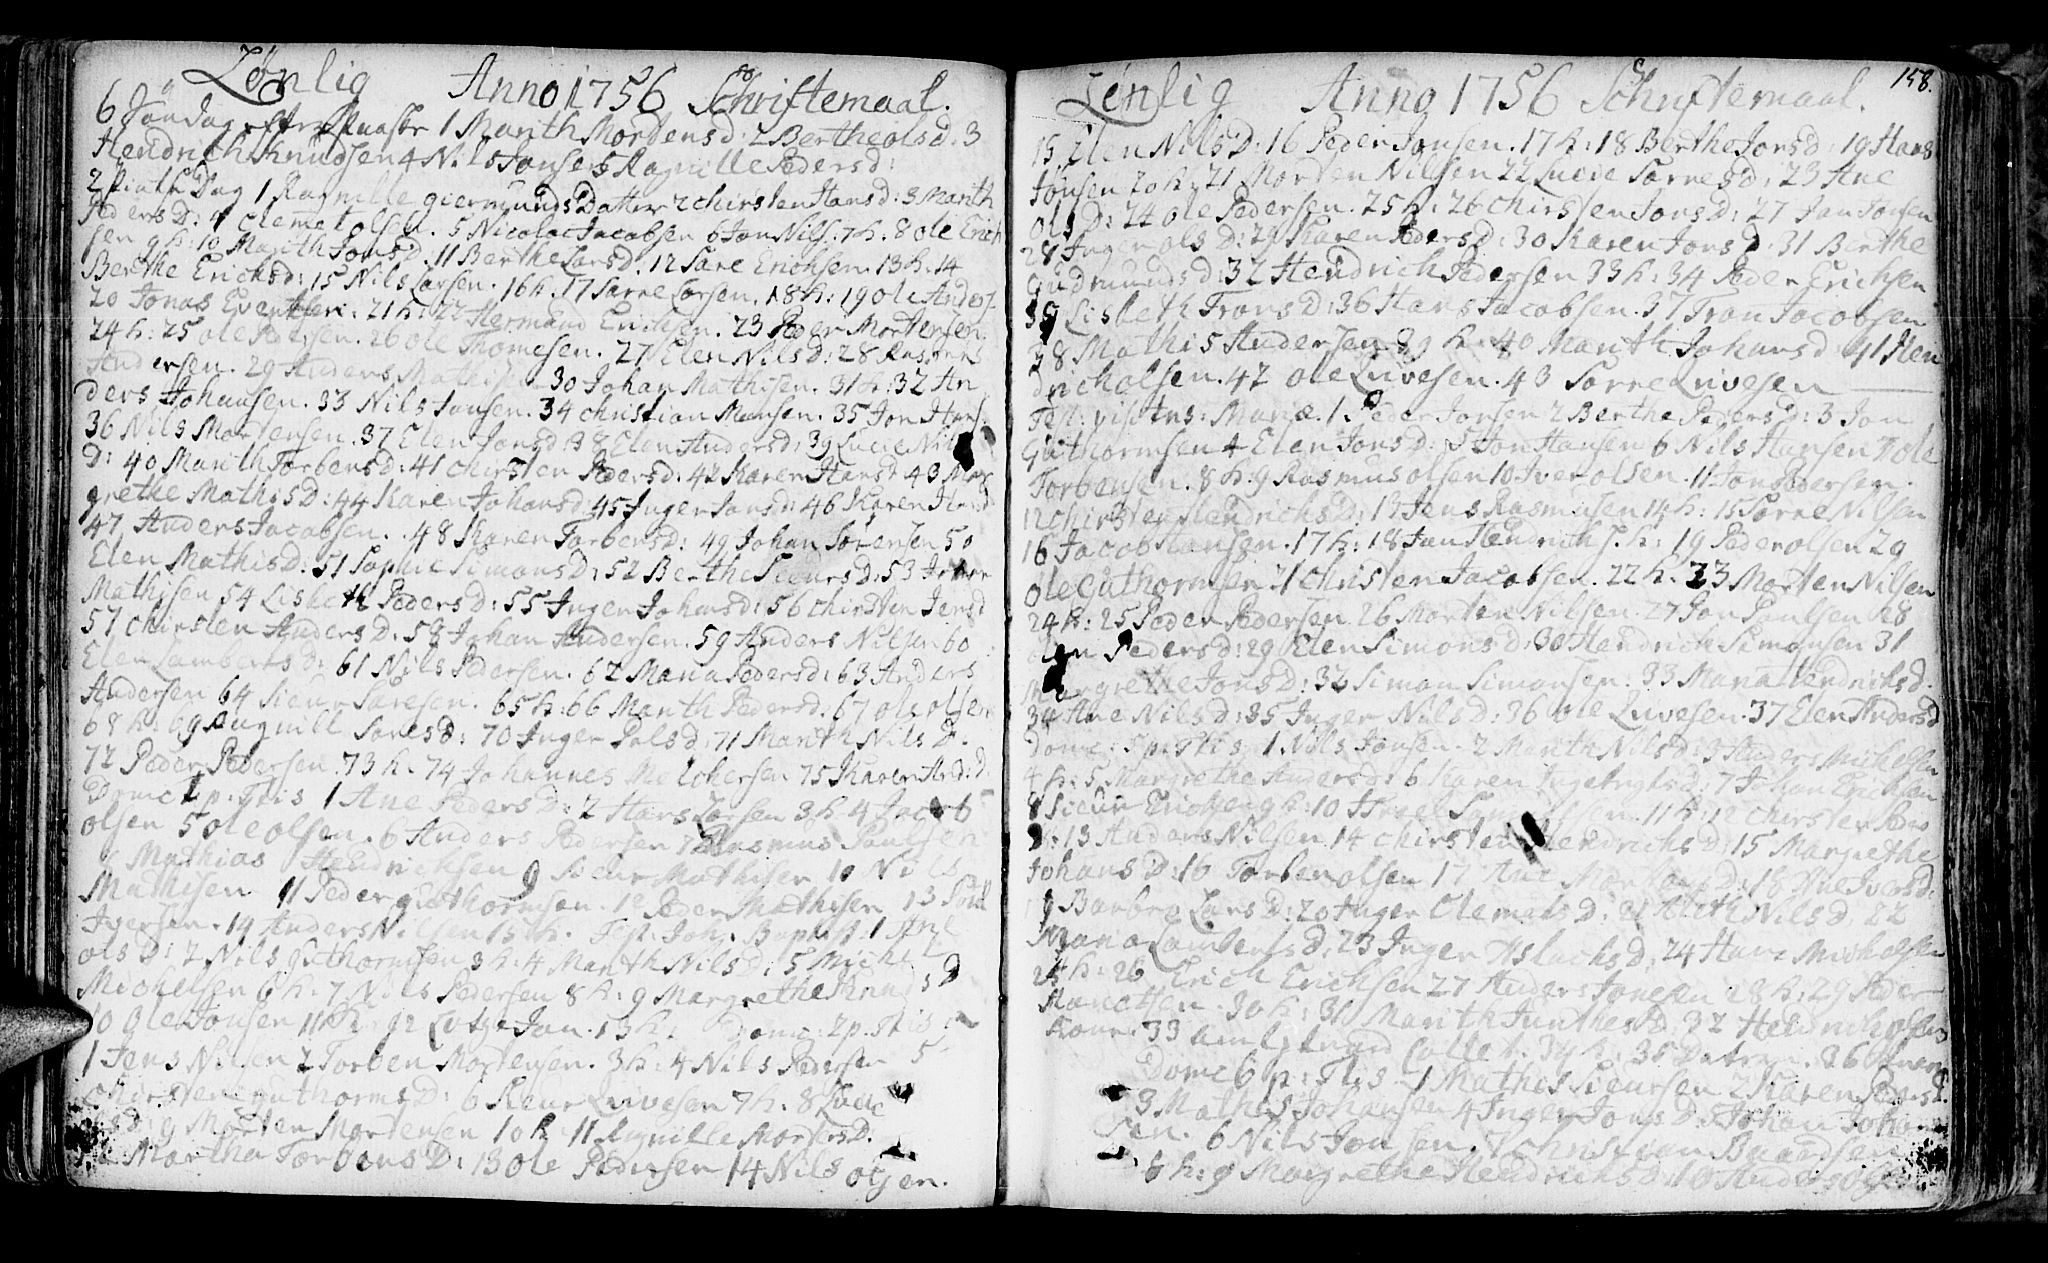 Lønlig Anno 1756 Schriftemaal.
6 Søndag efter Paaske 1 Marith Mortensd: 2 Berthe Olsd: 3
Hendrich Knudsen 4 Nils Jonsen 5 Ragnille Pedersd:
2 Pintse Dag 1 Ragnille giermunds Datter 2 Chirsten Hansd: 3 Marith
Pedersd: 4 Clemet Olsen. 5 Nicolai Jacobsen 6 Jon Nils. 7 K. 8 Ole Erich
sen 9 K: 10 Marith Jonsd. 11 Berthe Larsd. 12 Sare Erichsen. 13 K: 14
Berthe Ericksd: 15 Nils Larsen. 16 K. 17 Sørre Larsen. 18 K: 19 Ole Anders.
20 Jonas Eventsen: 21 K: 22 Hermand Erichsen. 23 Peder Mortensen
24 K: 25 Ole Pedersen. 26 Ole Thomesen. 27 Elen Nilsd: 28 Rasmus
Andersen. 29 Anders Mathisen 30 Johan Mathisen. 31 K: 32 An
ders Johansen. 33 Nils Jonsen. 34 Christian Monsen. 35 Jon Hans.
36 Nils Mortensen. 37 Elen Jonsd: 38 Elen Andersd: 39 Lucie Nils
D: 40 Marith Torbensd: 41 Chirsten Pedersd: 42 Karen Hansd 43 Mar
grethe Mathisd: 44 Karen Johansd: 45 Inger Jonsd: 46 Karen
47 Anders Jacobsen. 48 Karen Torbersd: 49 Johan Sørensen 50
Elen Mathisd: 51 Sophie Simonsd: 52 Berthe Sieursd: 53
Mathisen 54 Lisbeth Pedersd: 55 Inger Johansd: 56 Chirsten Jensd
57 Chirsten Andersd: 58 Johan Andersen. 59 Anders Nilsen 60
Elen Lambertsd: 61 Nils Pedersen. 62 Maria Pedersd: 63 Anders
Andersen 64 Sieur Saresen. 65 K: 66 Marith Pedersd. 67 Ole Olsen
68 K: 69 Raugnill Soresd: 70 Inger Palsd: 71 Marith Nilsd.
72 Peder Pedersen. 73 K. 74 Johannes Melchersen 75 Karen And: D
Domc 1 p: Tris 1 Ane Pedersd: 2 Hans Jørsen 3 K 4 Jacob
Olsen 5 Ole Olsen. 6 Anders Pedersen 7 Rasmus Paulsen
Mathias Hendrichsen 9 Sieur Mathisen 10 Nils
Mathisen 11 Peder Guthormsen. 12 Peder Mathisen 13 Povl
Iversen. 14 Anders Nilsen 15 K. Fest: Joh: Baptist: 1 Ane
Olsd: 2 Nils Guthormsen 3 K: 4 Marith Nilsd: 5 Michel
Michelsen 6 K: 7 Nils Pedersen 8 K: 9 Margrethe Knudsd
10 Ole Jonsen 11 K: 12 Jan. 13 K: Domc: 2 p: Tris
1 Jens Nilsen 2 Torben Mortensen. 3 K: 4 Nils Pedersen 5
Chirsten Guthormsd: 6 Sieur Luvesen 7 K: 8 Lucie
sd: 9 Morten Mortensen 10 K 11 Ragnille Mortensd.
Martha Torbensd: 13 Ole Pedersen 14 Nils Olsen.
158.
Lønlig Anno 1756 Schriftemaal.
15 Elen Nilsd: 16 Peder Jonsen. 17 K: 18 Berthe Jonsd: 19 Hans
Jonsen 20 K: 21 Morten Nilsen 22 Lucie Sørresd: 23 Ane
Olsd: 24 Ole Pedersen. 25 K: 26 Chirsten Jonsd: 27 Jan Jonsen
28 Inger Olsd: 29 Karen Pedersd: 30 Karen Jonsd 31 Berthe
Gudmundsd: 32 Hendrich Pedersen 33 K: 34 Peder Erichsen
35 Lisbeth Tronsd: 36 Hans Jacobsen. 37 Tron Jacobsen
38 Mathis Andersen 39 K: 40 Marith Johansd 41 Hen
drich Olsen. 42 Ole Luvesen. 43 Sørre Luvesen
Fest: Visitns: Mariæ. 1 Peder Jonsen 2 Berthe Pedersd: 3 Jon
Guthormsen 4 Elen Jonsd: 5 Jon Hansen 6 Nils Hansen 7 Ole
Torbensen. 8 K: 9 Rasmus Olsen 10 Iver Olsen. 11 Jon Pedersen.
12 Chirsten Hendrichsd: 13 Jens Rasmusen 14 K: 15 Sørre Nilsen
16 Jacob Hansen. 17 K: 18 Jan Hendrichs. K: 19 Peder Olsen 20
Ole Guthormsen 21 Christen Jacobsen. 22 K. 23 Morten Nilsen
24 K: 25 Peder Pedersen 26 Morten Nilsen. 27 Jon Paulsen 28
Elen Pedersd: 29 Elen Simonsd: 30 Hendrich Simonsen 31
Margrethe Jonsd: 32 Simon Simonsen. 33 Maria Hendrichsd.
34 Ane Nilsd: 35 Inger Nilsd: 36 Ole Luvesen. 37 Elen Andersd
Domc: 5 p: Tris 1 Nils Jonsen. 2 Marith Nilsd: 3 Anders Michelsen
4 K: 5 Margrethe Andersd: 6 Karen Ingebrigtsd: 7 Johan Erichsen
8 Sieur Erichsen 9 K: 10 11 K: 12 Chirsten Peders
D: 13 Anders Nilsen 14 Chirsten Hendrichsd: 15 Margrethe
Johansd: 16 Torben Olsen 17 Ane 18 Ane Iversd:
19 Barbro Larsd: 20 Inger Clemetsd: 21 Aleth Nilsd 22
Maria Lambertsd: 23 Inger Aslachsd: 24 Hans Michelsen
25 K: 26 Erich Erichsen 27 Anders Jonesen 28 K: 29 Peder
30 K: 31 Marith 32 Hendrich Olsens
Kone. 33 Collet. 34 K: 35 36
Domc 6 p: Tris. 1 Mathis Sieursen 2 Karen Pedersd.
3 Mathis Johansen 4 Inger Jonsd: 5 Johan Johan
sen. 6 Nils Jonsen. 7 Christian Baardsen
8 K: 9 Margrethe Hendrichsd: 10 Anders Olsen